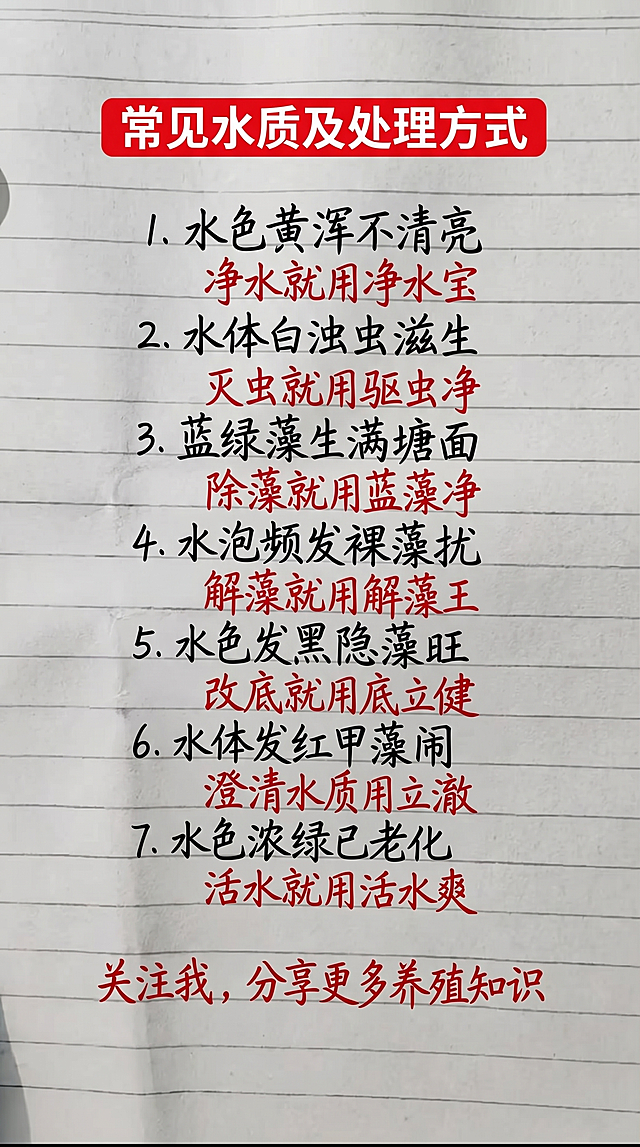 常见水质及处理方式
1. 水色黄浑不清亮
净水就用净水宝
2. 水体白浊虫滋生
灭虫就用驱虫净
3. 蓝绿藻生满塘面
除藻就用蓝藻净
4. 水泡频发裸藻扰
解藻就用解藻王
5. 水色发黑隐藻旺
改底就用底立健
6. 水体发红甲藻闹
澄清水质用立澈
7. 水色浓绿已老化
活水就用活水爽
关注我，分享更多养殖知识